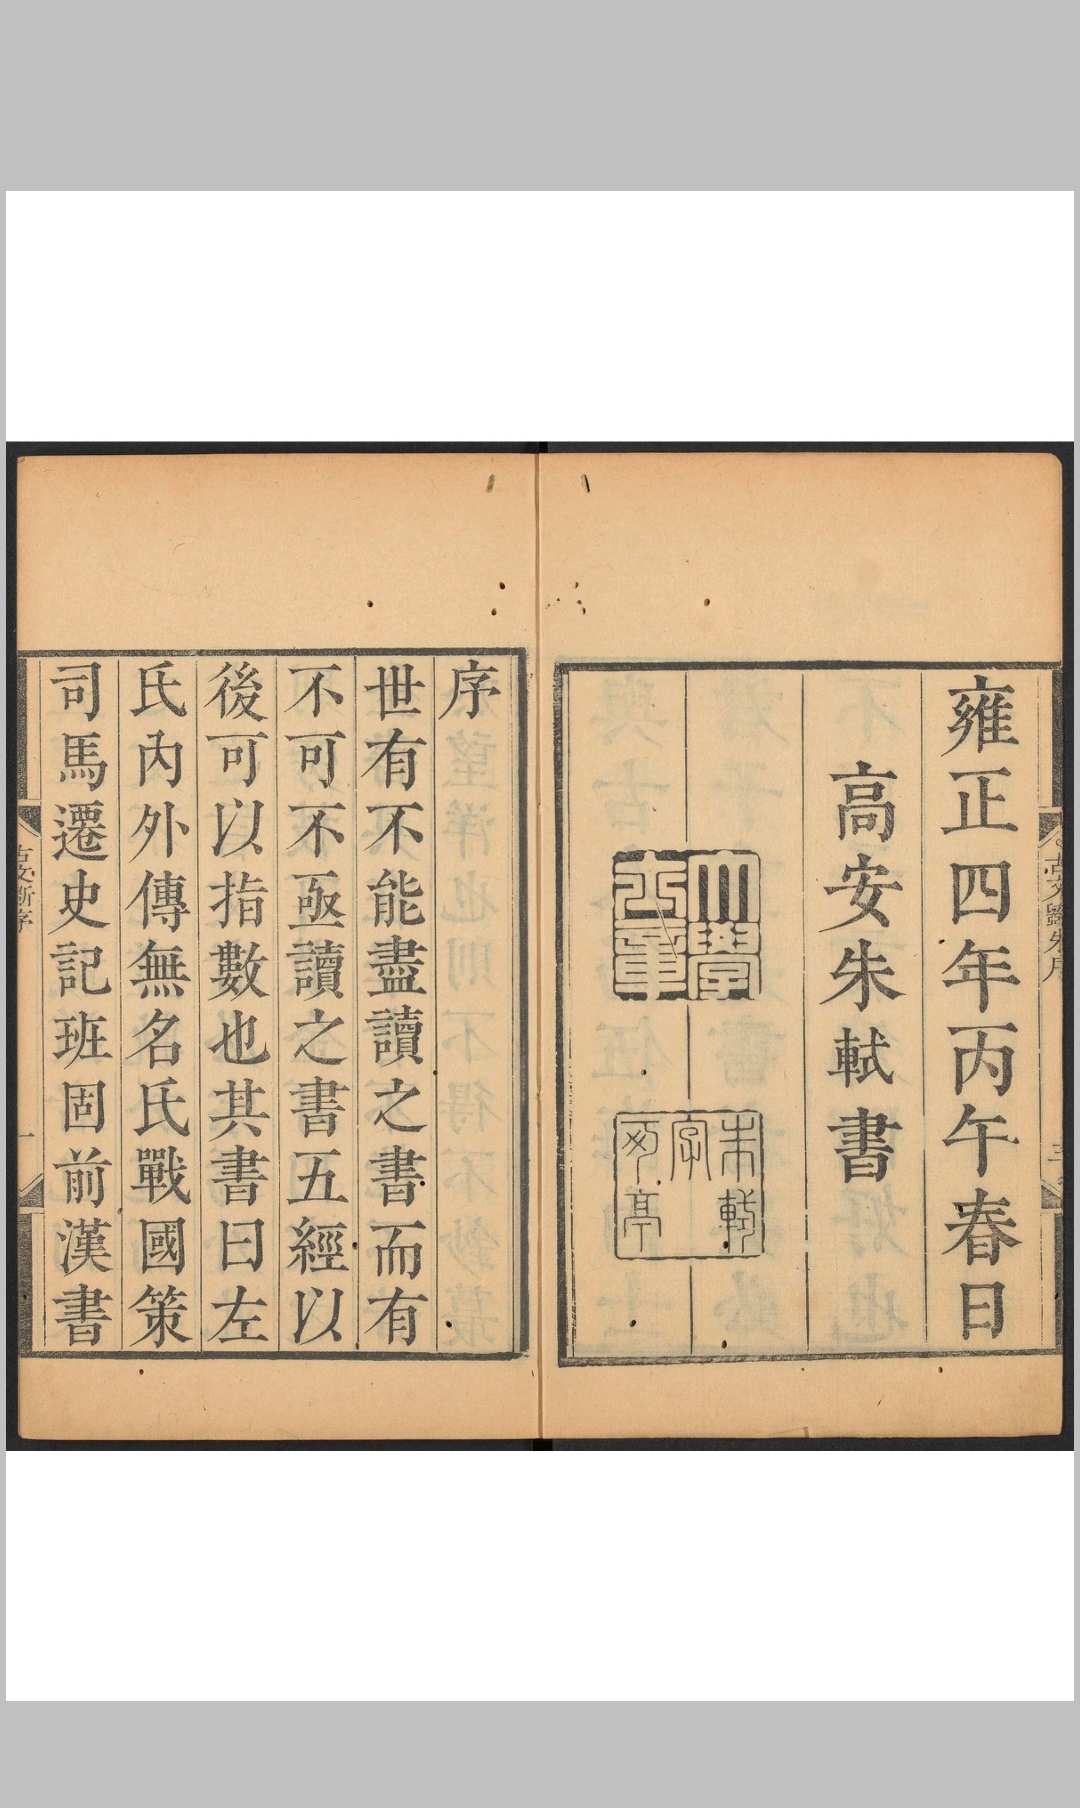 雍正四年丙午春日
高安朱軾書
大學
士章
朱軾
字
可亭
序
世有不能盡讀之書而有
不可不亟讀之書五經以
後可以指數也其書曰左
氏內外傳無名氏戰國策
司馬遷史記班固前漢書